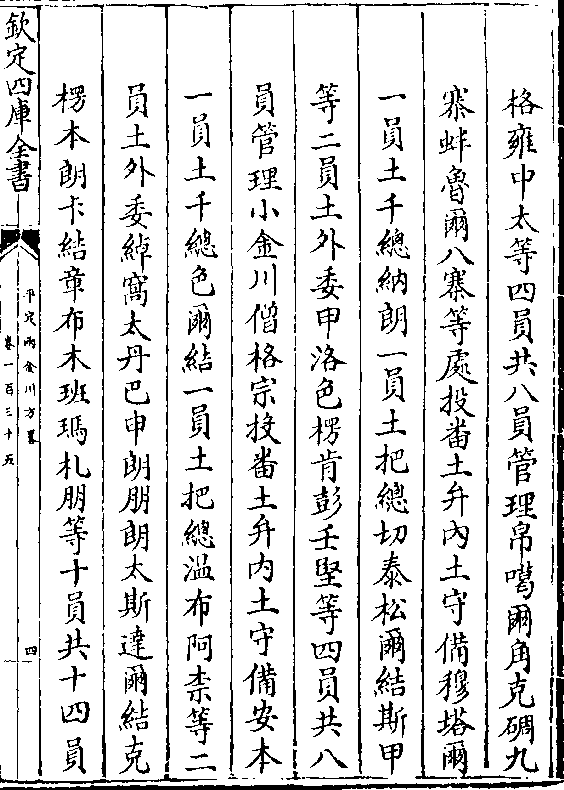 格雍中太等四員共八員管理帛噶爾角克碉九
寨蚌魯爾八寨等處投畨土弁內土守備穆塔爾
一員土千總納朗一員土把總切泰松爾結斯甲
等二員土外委申洛色楞肯彭壬堅等四員共八
員管理小金川僧格宗投畨土弁內土守備安本
一員土千總色爾結一員土把總温布阿柰等二
員土外委綽窩太丹巴申朗朋朗太斯達爾結克
楞本朗卡結章布木班瑪札朋等十員共十四員
欽定四庫全書
平定兩金川方畧
卷一百三十五
四